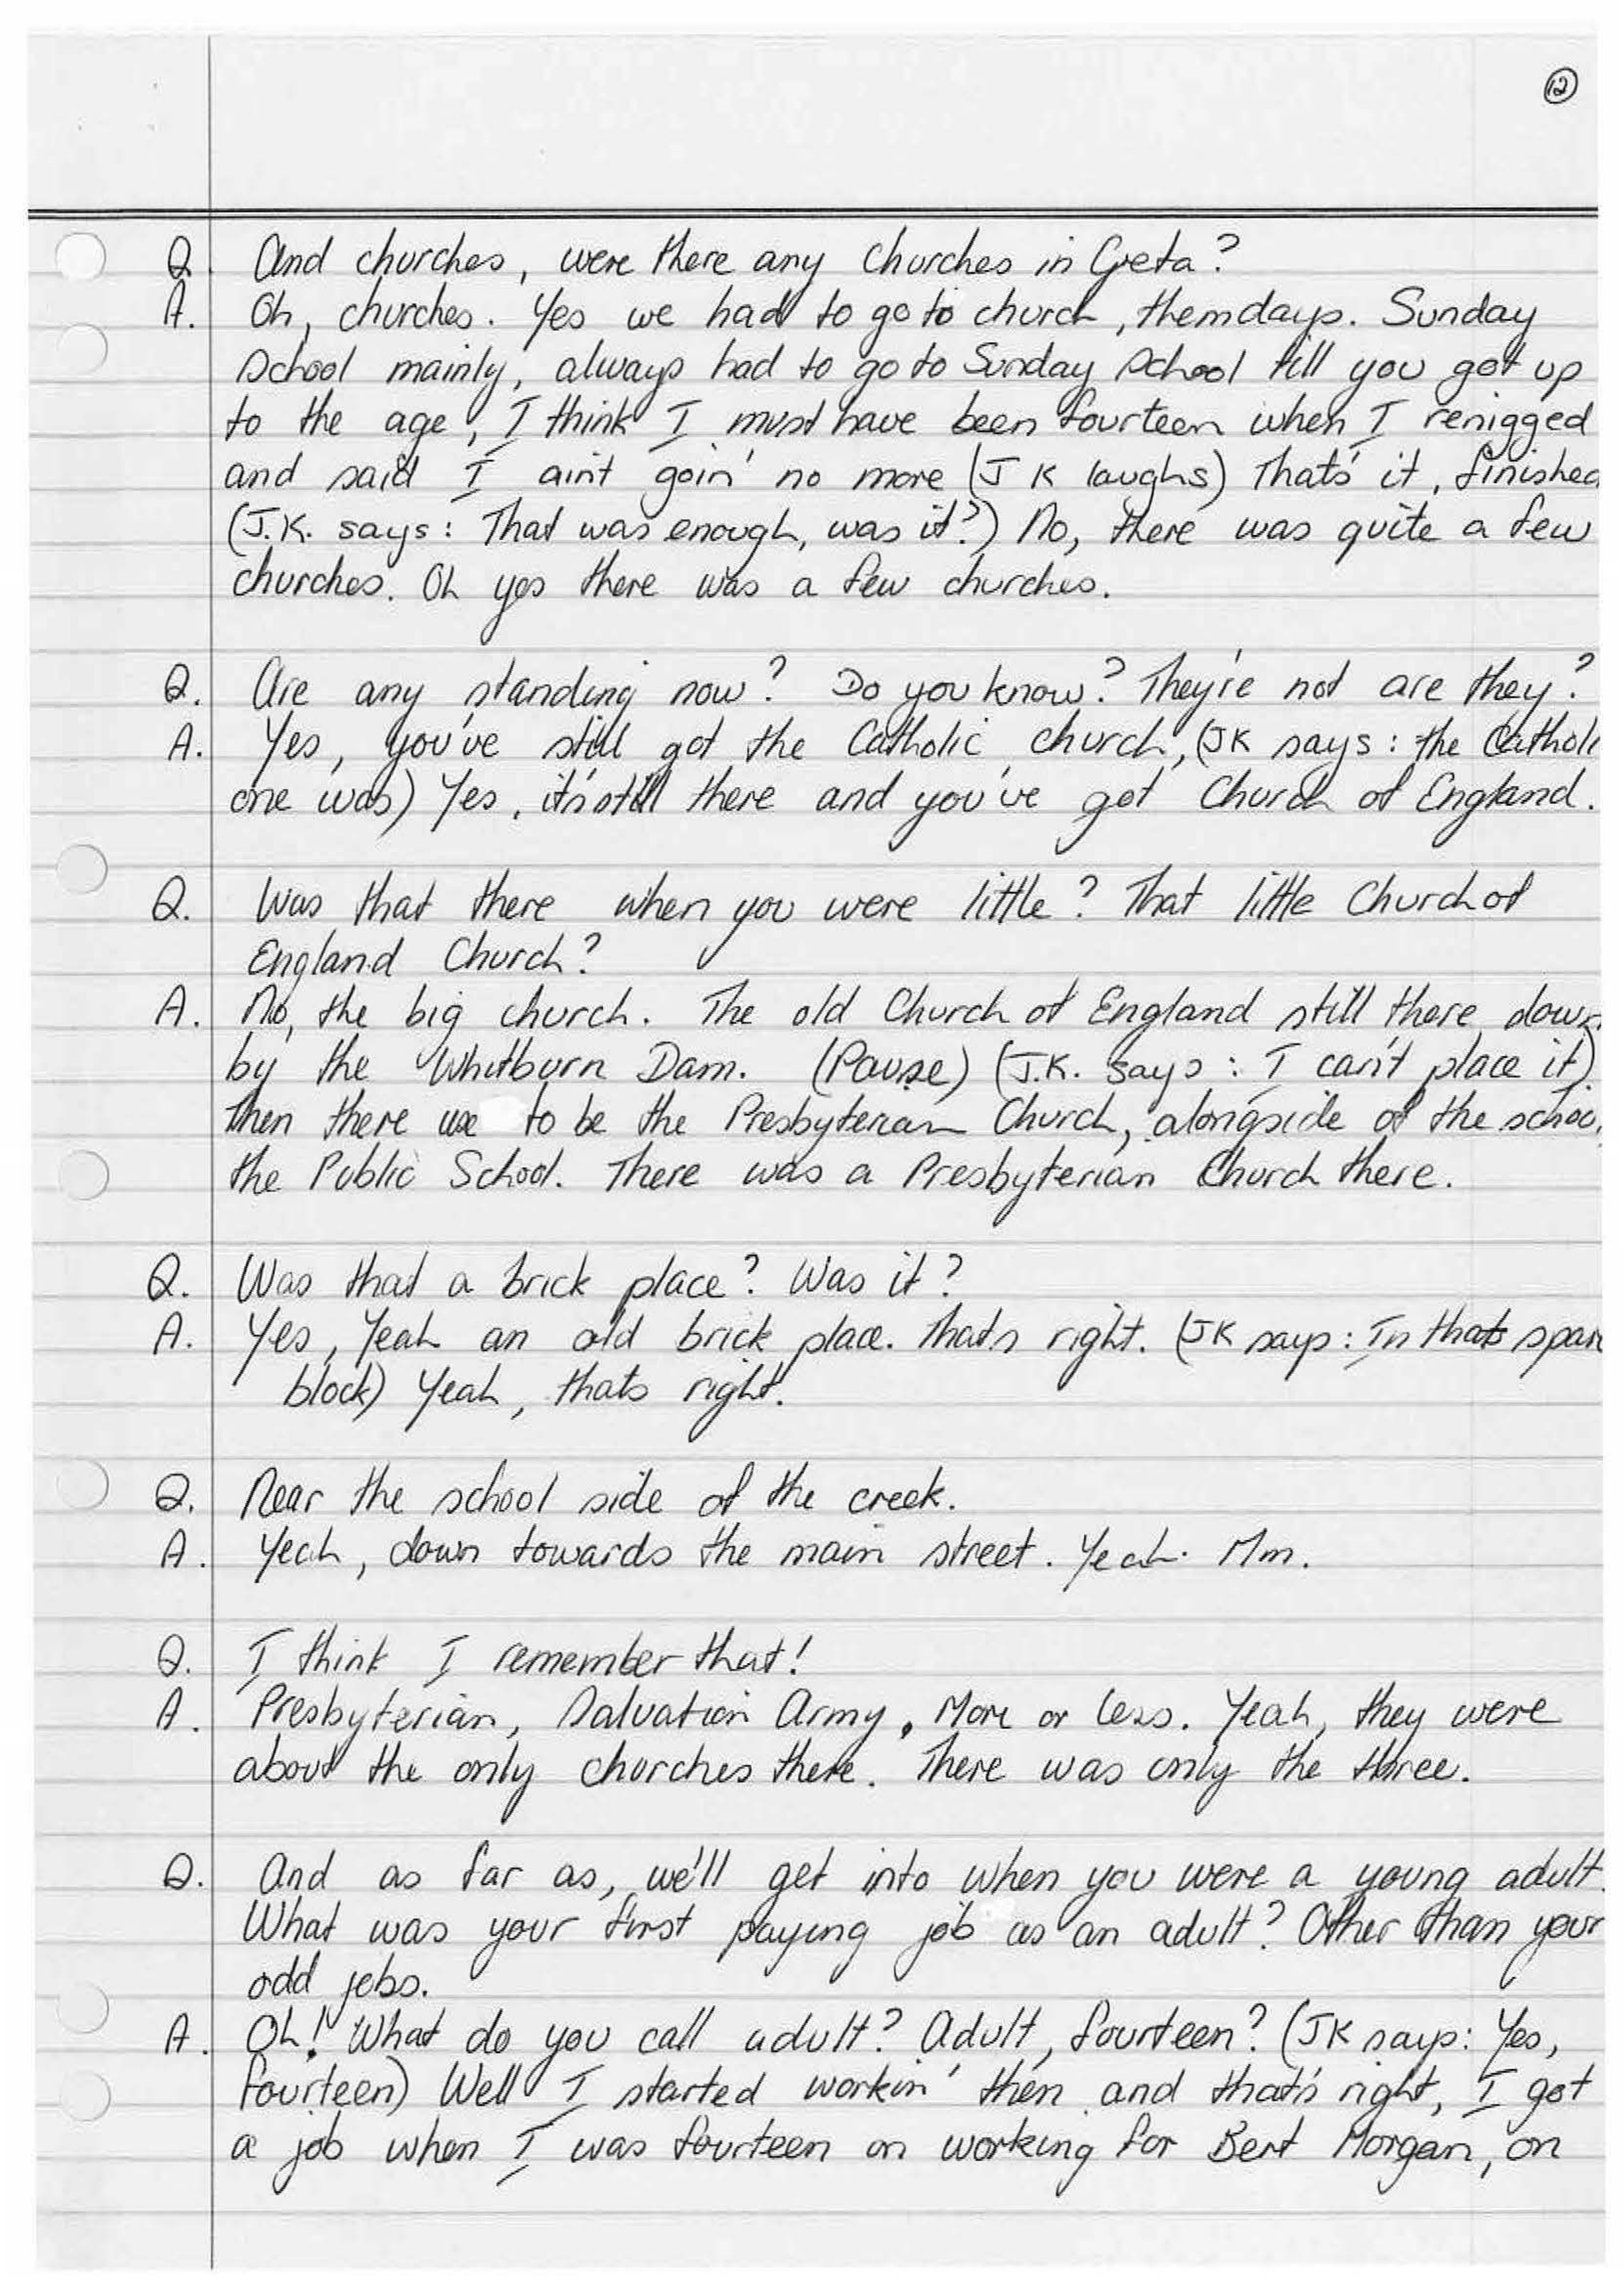 12
Q. And churches, were there any Churches in Greta?
A. Oh, churches. Yes we had to go to church, themdays. Sunday
School mainly, always had to go to Sunday School till you got up
to the age, I think I must have been fourteen when I renigged
and said I ain't goin' no more (J K laughs) That's it, finished
(J.K. says: That was enough, was it?) No, there was quite a few
churches. Oh yes there was a few churches.
Q. Are any standing now? Do you know? They're not are they?
A. Yes, you've still got the Catholic church, (JK says: the Catholi
one was) Yes, it's still there and you've got Church of England.
Q. Was that there when you were little? That little Church of
England Church?
A. No, the big church. The old Church of England still there, down
by the Whitburn Dam. (Pause) (J.K. says: I can't place it)
Then there use to be the Presbyterian Church, alongside of the schoo
the Public School. There was a Presbyterian Church there.
Q. Was that a brick place? Was it?
A. Yes, Yeah an old brick place. Thats right. (JK says: In thats spare
block) Yeah, thats right.
Q. Near the school side of the creek.
A. Yeah, down towards the main street. Yeah. Mm.
Q. I think I remember that!
A. Presbyterian, Salvation Army. More or less. Yeah, they were
about the only churches there. There was only the three.
Q. And as far as, we'll get into when you were a young adult.
What was your first paying job as an adult? Other than your
odd jobs.
A. Oh! What do you call adult? Adult, fourteen? (JK says: Yes,
fourteen) Well I started workin' then and that's right, I got
a job when I was fourteen on working for Bert Morgan, on